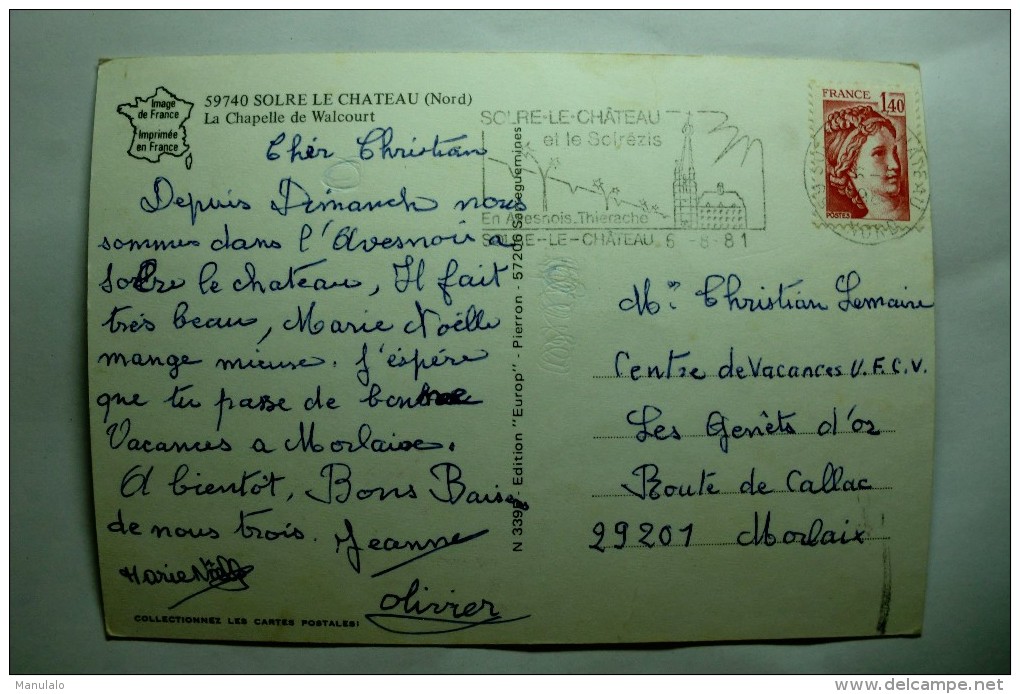 Image
de France
Imprimée
en France
59740 SOLRE LE CHATEAU (Nord)
La Chapelle de Walcourt
Chèr Christian
Depuis Dimanch nous
sommes dans l'Avesnois a
Solre le chateau, Il fait
très beau, Marie Noëlle
mange mieux. J'éspére
que tu passe de bonne
Vacances a Morlaix.
A bientôt, Bons Baisers
de nous trois. Jeanne
Marie Noëlle
Olivier
COLLECTIONNEZ LES CARTES POSTALES!
N 3395 - Edition "Europ" - Pierron - 57206 Sarreguemines
SOLRE-LE-CHÂTEAU
et le Solrézis
En Avesnois.Thiérache
SOLRE--LE-CHÂTEAU 6 -8-81
FRANCE
1,40
POSTES
Mr Christian Lemaire
Centre de Vacances U.F.C.V.
Les Genêts d'or
Route de Callac
29201 Morlaix
Manulalo
www.delcampe.net